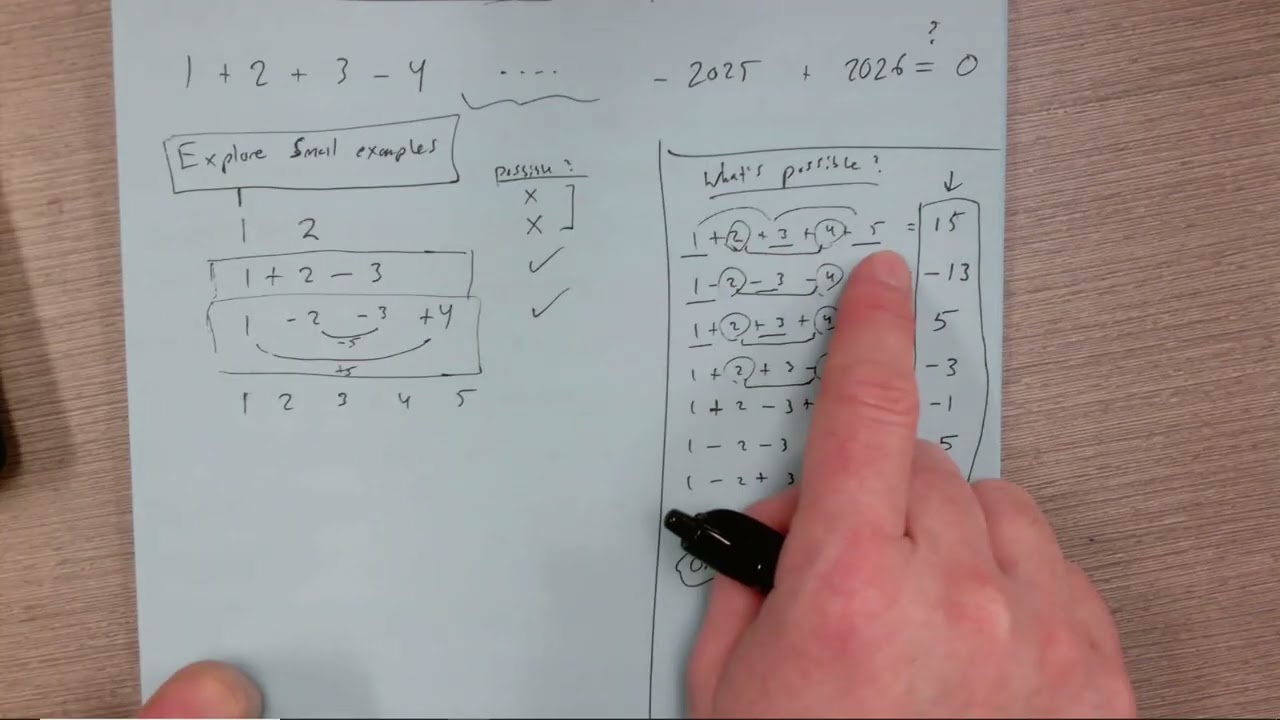 1 + 2 + 3 - 4 .... - 2025 + 2026 = 0
?
Explore Small examples
possible?
1
1 2
1 + 2 - 3
1 - 2 - 3 + 4
-5
+5
1 2 3 4 5
x
x
✓
✓
What's possible?
↓
1 + 2 + 3 + 4 + 5 = 15
1 - 2 - 3 - 4 -13
1 + 2 + 3 + 4 5
1 + 2 + 3 - -3
1 + 2 - 3 + -1
1 - 2 - 3 5
1 - 2 + 3